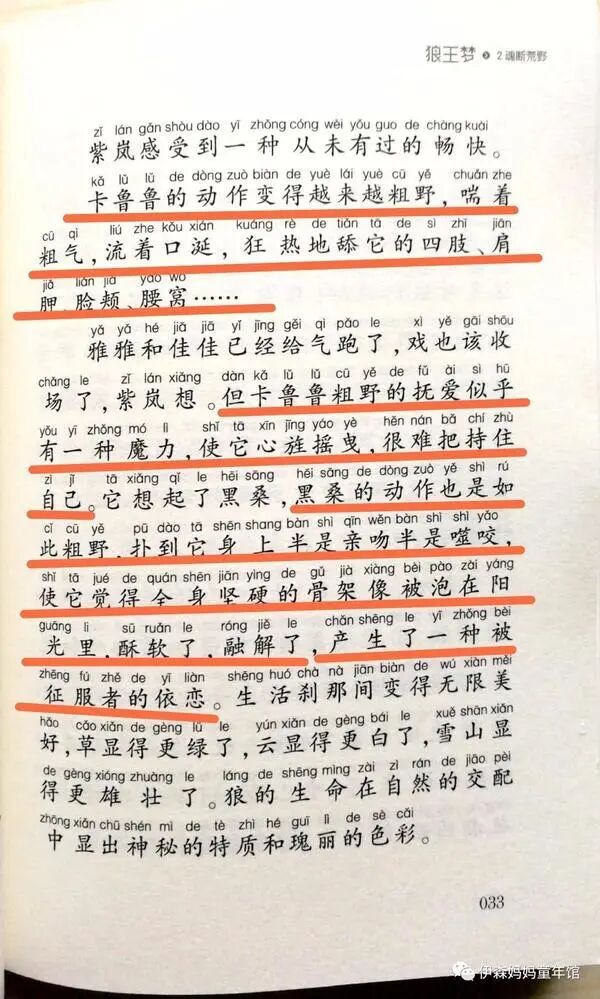 狼王梦 2 魂断荒野
zǐ lán gǎn shòu dào yī zhǒng cóng wèi yǒu guo de chàng kuài
紫岚感受到一种从未有过的畅快。
kǎ lǔ lǔ de dòng zuò biàn de yuè lái yuè cū yě chuǎn zhe
卡鲁鲁的动作变得越来越粗野，喘着
cū qì liú zhe kǒu xián kuáng rè de tiǎn tā de sì zhī jiān
粗气，流着口涎，狂热地舔它的四肢、肩
jiǎ liǎn jiá yāo wō
胛、脸颊、腰窝……
yǎ yǎ hé jiā jiā yǐ jīng gěi qì pǎo le xì yě gāi shōu
雅雅和佳佳已经给气跑了，戏也该收
chǎng le zǐ lán xiǎng dàn kǎ lǔ lǔ cū yě de fǔ ài sì hū
场了，紫岚想。但卡鲁鲁粗野的抚爱似乎
yǒu yī zhǒng mó lì shǐ tā xīn jīng yáo yè hěn nán bǎ chí zhù
有一种魔力，使它心旌摇曳，很难把持住
zì jǐ tā xiǎng qǐ le hēi sāng hēi sāng de dòng zuò yě shì rú
自己。它想起了黑桑，黑桑的动作也是如
cǐ cū yě pū dào tā shēn shang bàn shì qīn wěn bàn shì shì yǎo
此粗野，扑到它身上半是亲吻半是噬咬，
shǐ tā jué de quán shēn jiān yìng de gǔ jià xiàng bèi pào zài yáng
使它觉得全身坚硬的骨架像被泡在阳
guāng li sū ruǎn le róng jiě le chǎn shēng le yī zhǒng bèi
光里，酥软了，融解了，产生了一种被
zhēng fú zhě de yī liàn shēng huó chà nà jiān biàn de wú xiàn měi
征服者的依恋。生活刹那间变得无限美
hǎo cǎo xiǎn de gèng lǜ le yún xiǎn de gèng bái le xuě shān xiǎn
好，草显得更绿了，云显得更白了，雪山显
de gèng xióng zhuàng le láng de shēng mìng zài zì rán de jiāo pèi
得更雄壮了。狼的生命在自然的交配
zhōng xiǎn chū shén mì de tè zhì hé guī lì de sè cǎi
中显出神秘的特质和瑰丽的色彩。
033
伊森妈妈童年馆